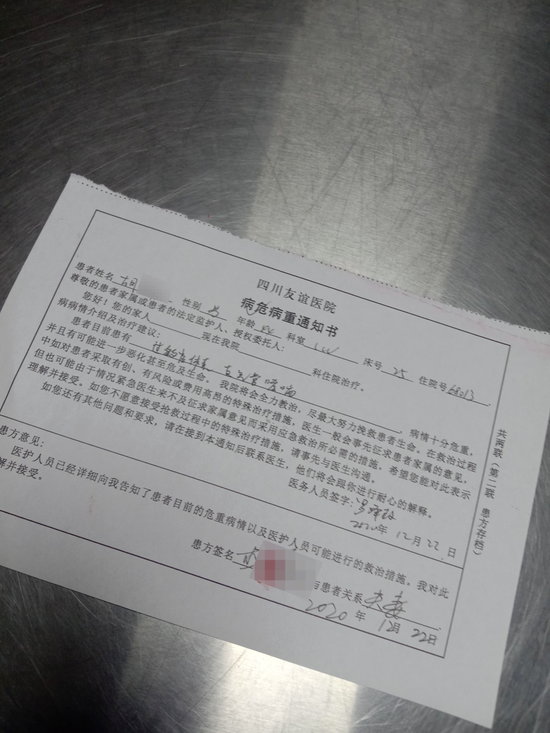 四川友谊医院
病危病重通知书
患者姓名 性别 年龄 科室 床号 25 住院号
尊敬的患者家属或患者的法定监护人、授权委托人：
您好！您的家人 现在我院 科住院治疗。
病病情介绍及治疗建议：
患者目前患有 支气管哮喘 病情十分危重，
并且有可能进一步恶化甚至危及生命。我院将会全力救治，尽最大努力挽救患者生命。在救治过程
中如对患者采取有创、有风险或费用高昂的特殊治疗措施，医生一般会事先征求患者家属的意见，
但也可能由于情况紧急医生来不及征求家属意见而采用应急救治所必需的措施，希望您能对此表示
理解并接受。如您不愿意接受抢救过程中的特殊治疗措施，请事先与医生沟通。
如您还有其他问题和要求，请在接到本通知后联系医生，他们将会跟你进行耐心的解释。
医务人员签字：
2020年12月22日
患方意见：
医护人员已经详细向我告知了患者目前的危重病情以及医护人员可能进行的救治措施。我对此
理解并接受。
患方签名 与患者关系 夫妻
2020年12月22日
共两联（第二联 患方存档）